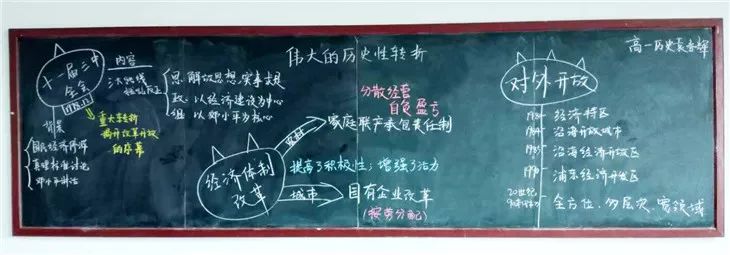 伟大的历史性转折
高一历史
十一届三中
全会
1978.12
内容
思:解放思想、实事求是
政:以经济建设为中心
组:以邓小平为核心
重大转折
揭开改革开放
的序幕
背景
国民经济停滞
真理标准讨论
邓小平讲话
经济体制
改革
农村
家庭联产承包责任制
分散经营
自负盈亏
提高了积极性;增强了活力
城市
国有企业改革
(按劳分配)
对外开放
1980 经济特区
1984 沿海开放城市
1985 沿海经济开放区
1990 浦东经济开发区
20世纪
90年代初 全方位、多层次、宽领域